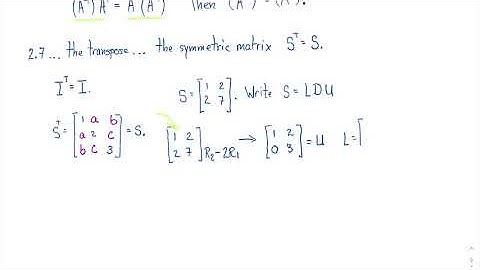 (A⁻¹)ᵀAᵀ = A(A⁻¹) Then (A⁻¹)ᵀ = (Aᵀ)⁻¹.
2.7... the transpose... the symmetric matrix Sᵀ = S.
Iᵀ = I. S = [1 2; 2 7]. Write S = LDU
Sᵀ = [1 a b; a 2 c; b c 3] = S. [1 2; 2 7] R₂-2R₁ → [1 2; 0 3] = U L = [